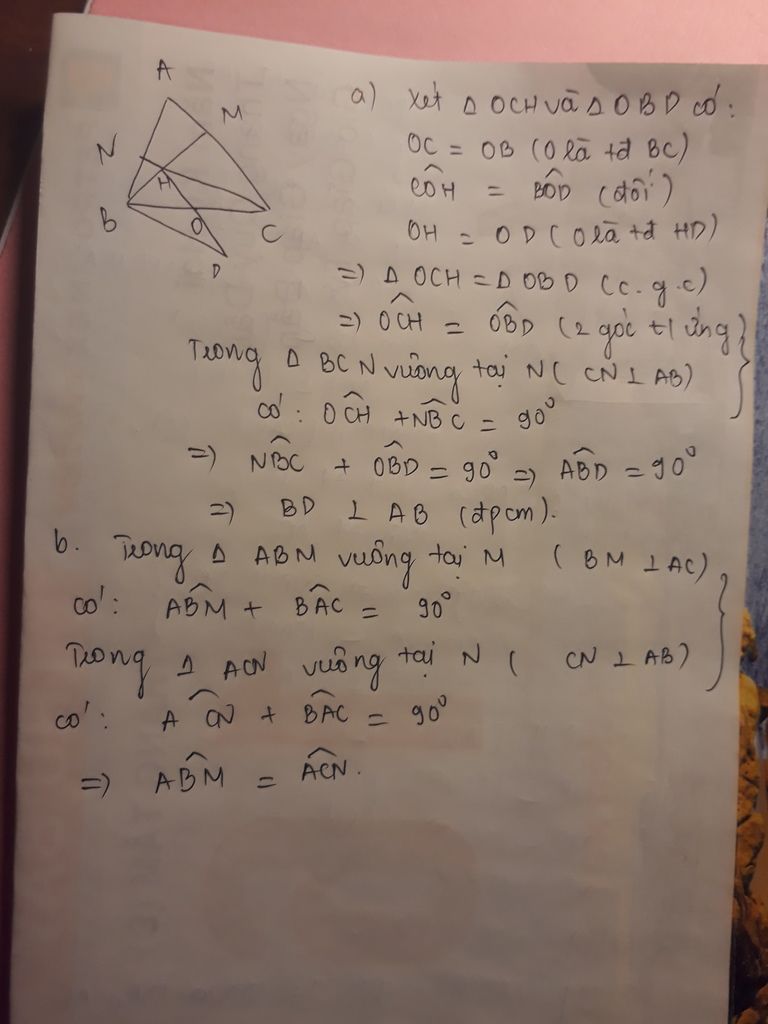 A
M
N
H
B
O
C
D
a) Xét Δ OCH và Δ OBD có:
OC = OB (O là tđ BC)
$\widehat{COH}$ = $\widehat{BOD}$ (đối)
OH = OD (O là tđ HD)
=) Δ OCH = Δ OBD (c.g.c)
=) $\widehat{OCH}$ = $\widehat{OBD}$ (2 góc t/ ứng)
Trong Δ BCN vuông tại N ( CN ⊥ AB)
có: $\widehat{OCH}$ + $\widehat{NBC}$ = 90°
=) $\widehat{NBC}$ + $\widehat{OBD}$ = 90° =) $\widehat{ABD}$ = 90°
=) BD ⊥ AB (đpcm).
b. Trong Δ ABM vuông tại M ( BM ⊥ AC)
có: $\widehat{ABM}$ + $\widehat{BAC}$ = 90°
Trong Δ ACN vuông tại N ( CN ⊥ AB)
có: $\widehat{ACN}$ + $\widehat{BAC}$ = 90°
=) $\widehat{ABM}$ = $\widehat{ACN}$.